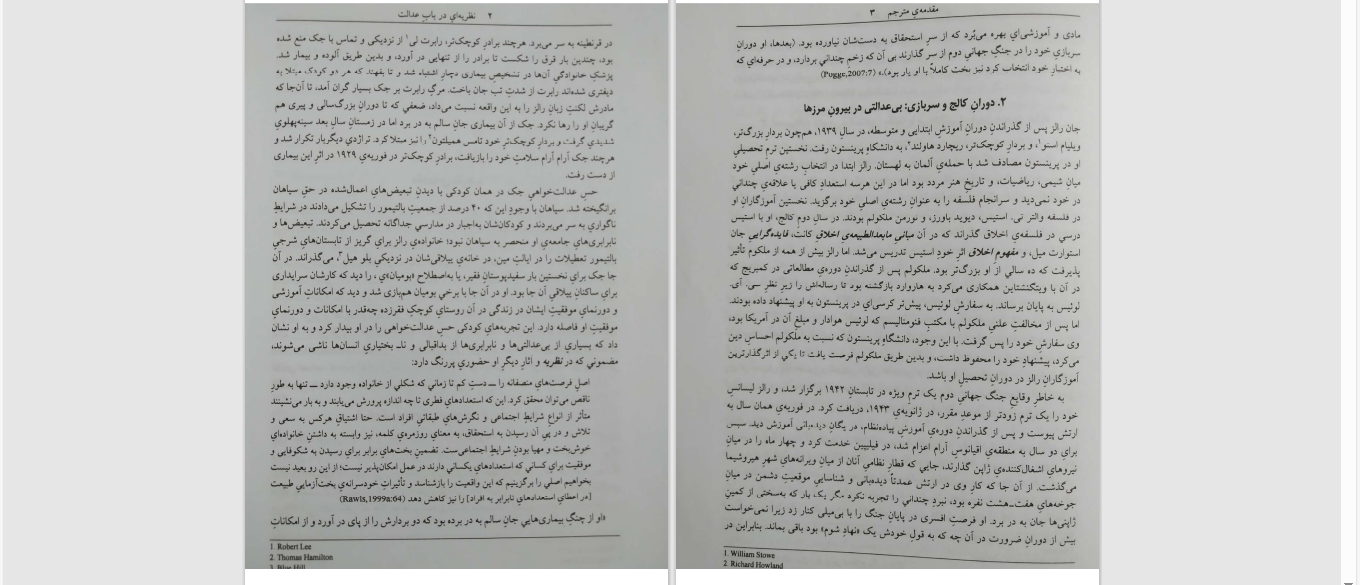 ۲ نظریه‌ای در باب عدالت
در قرنطینه به سر می‌برد. هرچند برادرِ کوچک‌تر، رابرت لی۱ از نزدیکی و تماس با جک منع شده
بود، چندین بار قرق را شکست تا برادر را از تنهایی در آورد، و بدین طریق آلوده و بیمار شد.
پزشکِ خانوادگیِ آن‌ها در تشخیصِ بیماری دچار اشتباه شد و تا بفهمد که هر دو کودک مبتلا به
دیفتری شده‌اند رابرت از شدتِ تب جان باخت. مرگِ رابرت بر جک بسیار گران آمد، تا آن‌جا که
مادرش لکنتِ زبانِ رالز را به این واقعه نسبت می‌داد، ضعفی که تا دورانِ بزرگ‌سالی و پیری هم
گریبانِ او را رها نکرد. جک از آن بیماری جانِ سالم به در برد اما در زمستانِ سالِ بعد سینه‌پهلویِ
شدیدی گرفت و برادرِ کوچک‌ترِ خود تامس همیلتون۲ را نیز مبتلا کرد. تراژدی دیگربار تکرار شد و
هرچند جک آرام آرام سلامتِ خود را بازیافت، برادرِ کوچک‌تر در فوریه‌ی ۱۹۲۹ در اثرِ این بیماری
از دست رفت.
حسِ عدالت‌خواهیِ جک در همان کودکی با دیدنِ تبعیض‌های اعمال‌شده در حقِ سیاهان
برانگیخته شد. سیاهان با وجودِ این که ۴۰ درصد از جمعیتِ بالتیمور را تشکیل می‌دادند در شرایطِ
ناگواری به سر می‌بردند و کودکان‌شان به‌اجبار در مدارسی جداگانه تحصیل می‌کردند. تبعیض‌ها و
نابرابری‌هایِ جامعه‌ی او منحصر به سیاهان نبود؛ خانواده‌یِ رالز برایِ گریز از تابستان‌هایِ شرجیِ
بالتیمور تعطیلات را در ایالتِ مین، در خانه‌یِ ییلاقی‌شان در نزدیکیِ بلو هیل۳، می‌گذراند. در آن
جا جک برایِ نخستین بار سفیدپوستانِ فقیر، یا به‌اصطلاح «بومیان»ی، را دید که کارشان سرایداری
برایِ ساکنانِ ییلاقیِ آن جا بود. او در آن جا با برخی بومیان هم‌بازی شد و دید که امکاناتِ آموزشی
و دورنمایِ موفقیتِ ایشان در زندگی در آن روستایِ کوچکِ فقرزده چه‌قدر با امکانات و دورنمایِ
موفقیتِ او فاصله دارد. این تجربه‌هایِ کودکی حسِ عدالت‌خواهی را در او بیدار کرد و به او نشان
داد که بسیاری از بی‌عدالتی‌ها و نابرابری‌ها از بداقبالی و نا‌ـ بختیاریِ انسان‌ها ناشی می‌شوند،
مضمونی که در نظریه و آثارِ دیگرِ او حضوری پررنگ دارد:
اصلِ فرصت‌هایِ منصفانه را ــ دستِ کم تا زمانی که شکلی از خانواده وجود دارد ــ تنها به طورِ
ناقص می‌توان محقق کرد. این که استعدادهایِ فطری تا چه اندازه پرورش می‌یابند و به بار می‌نشینند
متأثر از انواعِ شرایطِ اجتماعی و نگرش‌هایِ طبقاتیِ افراد است. حتا اشتیاقِ هرکس به سعی و
تلاش و در پیِ آن رسیدن به استحقاق، به معنایِ روزمره‌یِ کلمه، نیز وابسته به داشتنِ خانواده‌ای
خوش‌بخت و مهیا بودنِ شرایطِ اجتماعی‌ست. تضمینِ بخت‌هایِ برابر برایِ رسیدن به شکوفایی و
موفقیت برایِ کسانی که استعدادهایِ یکسانی دارند در عمل امکان‌پذیر نیست؛ از این رو بعید نیست
بخواهیم اصلی را برگزینیم که این واقعیت را بازشناسد و تأثیراتِ خودسرانه‌یِ بخت‌آزماییِ طبیعت
[در اعطایِ استعدادهایِ نابرابر به افراد] را نیز کاهش دهد (Rawls,1999a:64)
«او از چنگِ بیماری‌هایی جانِ سالم به در برده بود که دو برادرش را از پای در آورد و از امکاناتِ
1. Robert Lee
2. Thomas Hamilton
3. Blue Hill
مقدمه‌یِ مترجم ۳
مادی و آموزشی‌ای بهره می‌بُرد که از سرِ استحقاق به دست‌شان نیاورده بود. (بعدها، او دورانِ
سربازیِ خود را در جنگِ جهانیِ دوم از سر گذراند بی آن که زخمِ چندانی بردارد، و در حرفه‌ای که
به اختیارِ خود انتخاب کرد نیز بخت کاملاً با او یار بود)» (Pogge,2007:7)
۲. دورانِ کالج و سربازی: بی‌عدالتی در بیرونِ مرزها
جان رالز پس از گذراندنِ دورانِ آموزشِ ابتدایی و متوسطه، در سالِ ۱۹۳۹، هم‌چون برادرِ بزرگ‌تر،
ویلیام استو۱، و برادرِ کوچک‌تر، ریچارد هاولند۲، به دانشگاهِ پرینستون رفت. نخستین ترمِ تحصیلیِ
او در پرینستون مصادف شد با حمله‌یِ آلمان به لهستان. رالز ابتدا در انتخابِ رشته‌یِ اصلیِ خود
میانِ شیمی، ریاضیات، و تاریخِ هنر مردد بود اما در این هرسه استعدادِ کافی یا علاقه‌یِ چندانی
در خود نمی‌دید و سرانجام فلسفه را به عنوانِ رشته‌یِ اصلیِ خود برگزید. نخستین آموزگارانِ او
در فلسفه والتر تی. استیس، دیوید باورز، و نورمن ملکولم بودند. در سالِ دومِ کالج، او با استیس
درسی در فلسفه‌یِ اخلاق گذراند که در آن مبانیِ مابعدالطبیعه‌یِ اخلاقِ کانت، فایده‌گراییِ جان
استوارت میل، و مفهومِ اخلاق اثرِ خودِ استیس تدریس می‌شد. اما رالز بیش از همه از ملکولم تأثیر
پذیرفت که ده سالی از او بزرگ‌تر بود. ملکولم پس از گذراندنِ دوره‌یِ مطالعاتی در کمبریج که
در آن با ویتگنشتاین همکاری می‌کرد به هاروارد بازگشته بود تا رساله‌اش را زیرِ نظرِ سی. آی.
لوئیس به پایان برساند. به سفارشِ لوئیس، پیش‌تر کرسی‌ای در پرینستون به او پیشنهاد داده بودند.
اما پس از مخالفتِ علنیِ ملکولم با مکتبِ فنومنالیسم که لوئیس هوادار و مبلغِ آن در آمریکا بود،
وی سفارشِ خود را پس گرفت. با این وجود، دانشگاهِ پرینستون که نسبت به ملکولم احساسِ دین
می‌کرد، پیشنهادِ خود را محفوظ داشت، و بدین طریق ملکولم فرصت یافت تا یکی از اثرگذارترین
آموزگارانِ رالز در دورانِ تحصیلِ او باشد.
به خاطرِ وقایعِ جنگِ جهانیِ دوم یک ترمِ ویژه در تابستانِ ۱۹۴۲ برگزار شد، و رالز لیسانسِ
خود را یک ترم زودتر از موعدِ مقرر، در ژانویه‌یِ ۱۹۴۳، دریافت کرد. در فوریه‌یِ همان سال به
ارتش پیوست و پس از گذراندنِ دوره‌یِ آموزشِ پیاده‌نظام، در یگانِ دیدبانی آموزش دید. سپس
برایِ دو سال به منطقه‌یِ اقیانوسِ آرام اعزام شد، در فیلیپین خدمت کرد و چهار ماه را در میانِ
نیروهایِ اشغال‌کننده‌یِ ژاپن گذارند، جایی که قطارِ نظامیِ آنان از میانِ ویرانه‌هایِ شهرِ هیروشیما
می‌گذشت. از آن جا که کارِ وی در ارتش عمدتاً دیده‌بانی و شناساییِ موقعیتِ دشمن در میانِ
جوخه‌هایِ هفت‌ـ‌هشت نفره بود، نبردِ چندانی را تجربه نکرد مگر یک بار که به‌سختی از کمینِ
ژاپنی‌ها جان به در برد. او فرصتِ افسری در پایانِ جنگ را با بی‌میلی کنار زد زیرا نمی‌خواست
بیش از دورانِ ضرورت در آن چه که به قولِ خودش یک «نهادِ شوم» بود باقی بماند. بنابراین در
1. William Stowe
2. Richard Howland